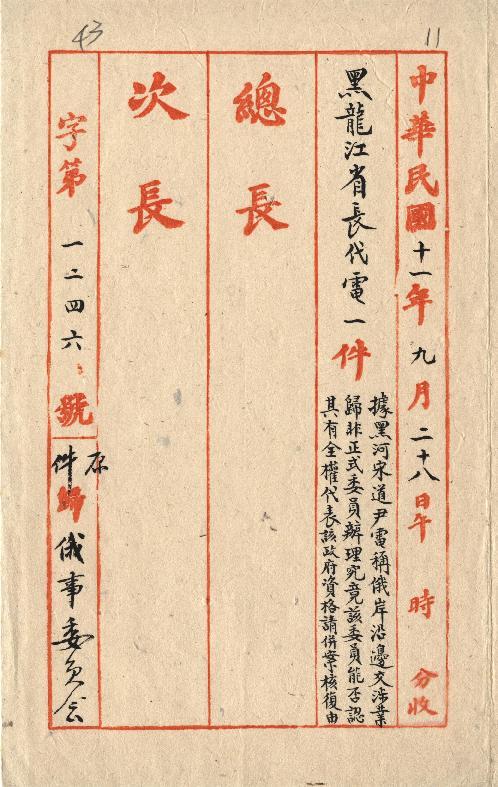 43
11
中華民國十一年九月二十八日午 時 分收
黑龍江省長代電一件
據黑河宋道尹電稱俄岸沿邊交涉業
歸非正式委員辦理究竟該委員能否認
其有全權代表該政府資格請併案核復由
總長
次長
字第一二四六號
原件歸俄事委員会